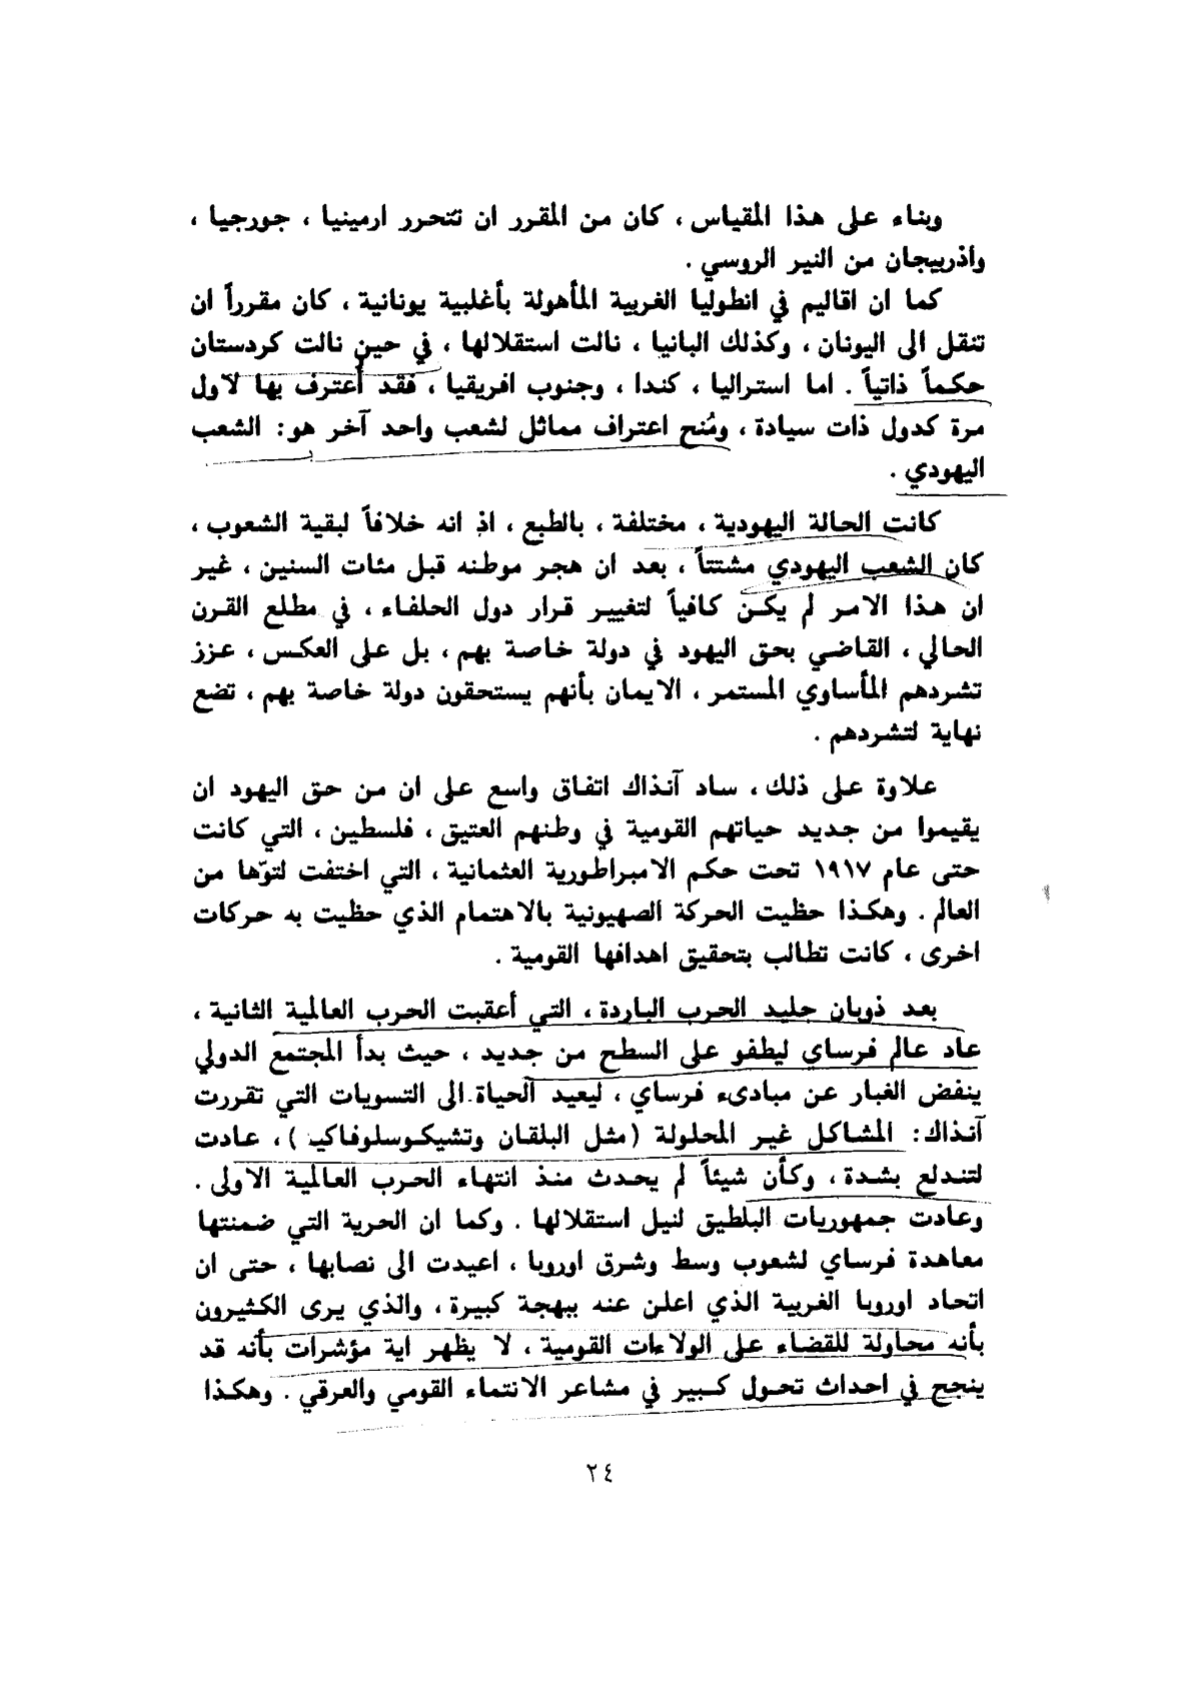 وبناء على هذا المقياس ، كان من المقرر ان تتحرر ارمينيا ، جورجيا ،
واذربيجان من النير الروسي .
كما ان اقاليم في انطوليا الغربية المأهولة بأغلبية يونانية ، كان مقرراً ان
تنقل الى اليونان ، وكذلك البانيا ، نالت استقلالها ، في حين نالت كردستان
حكماً ذاتياً . اما استراليا ، كندا ، وجنوب افريقيا ، فقد أعترف بها لاول
مرة كدول ذات سيادة ، ومُنح اعتراف مماثل لشعب واحد آخر هو : الشعب
اليهودي .
كانت الحالة اليهودية ، مختلفة ، بالطبع ، اذ انه خلافاً لبقية الشعوب ،
كان الشعب اليهودي مشتتاً ، بعد ان هجر موطنه قبل مئات السنين ، غير
ان هذا الامر لم يكن كافياً لتغيير قرار دول الحلفاء ، في مطلع القرن
الحالي ، القاضي بحق اليهود في دولة خاصة بهم ، بل على العكس ، عزز
تشردهم المأساوي المستمر ، الايمان بأنهم يستحقون دولة خاصة بهم ، تضع
نهاية لتشردهم .
علاوة على ذلك ، ساد آنذاك اتفاق واسع على ان من حق اليهود ان
يقيموا من جديد حياتهم القومية في وطنهم العتيق ، فلسطين ، التي كانت
حتى عام ١٩١٧ تحت حكم الامبراطورية العثمانية ، التي اختفت لتوّها من
العالم . وهكذا حظيت الحركة الصهيونية بالاهتمام الذي حظيت به حركات
اخرى ، كانت تطالب بتحقيق اهدافها القومية .
بعد ذوبان جليد الحرب الباردة ، التي أعقبت الحرب العالمية الثانية ،
عاد عالم فرساي ليطفو على السطح من جديد ، حيث بدأ المجتمع الدولي
ينفض الغبار عن مبادىء فرساي ، ليعيد الحياة الى التسويات التي تقررت
آنذاك : المشاكل غير المحلولة (مثل البلقان وتشيكوسلوفاكيا) ، عادت
لتندلع بشدة ، وكأن شيئاً لم يحدث منذ انتهاء الحرب العالمية الاولى .
وعادت جمهوريات البلطيق لنيل استقلالها . وكما ان الحرية التي ضمنتها
معاهدة فرساي لشعوب وسط وشرق اوروبا ، اعيدت الى نصابها ، حتى ان
اتحاد اوروبا الغربية الذي اعلن عنه ببهجة كبيرة ، والذي يرى الكثيرون
بأنه محاولة للقضاء على الولاءات القومية ، لا يظهر اية مؤشرات بأنه قد
ينجح في احداث تحول كبير في مشاعر الانتماء القومي والعرقي . وهكذا
٢٤